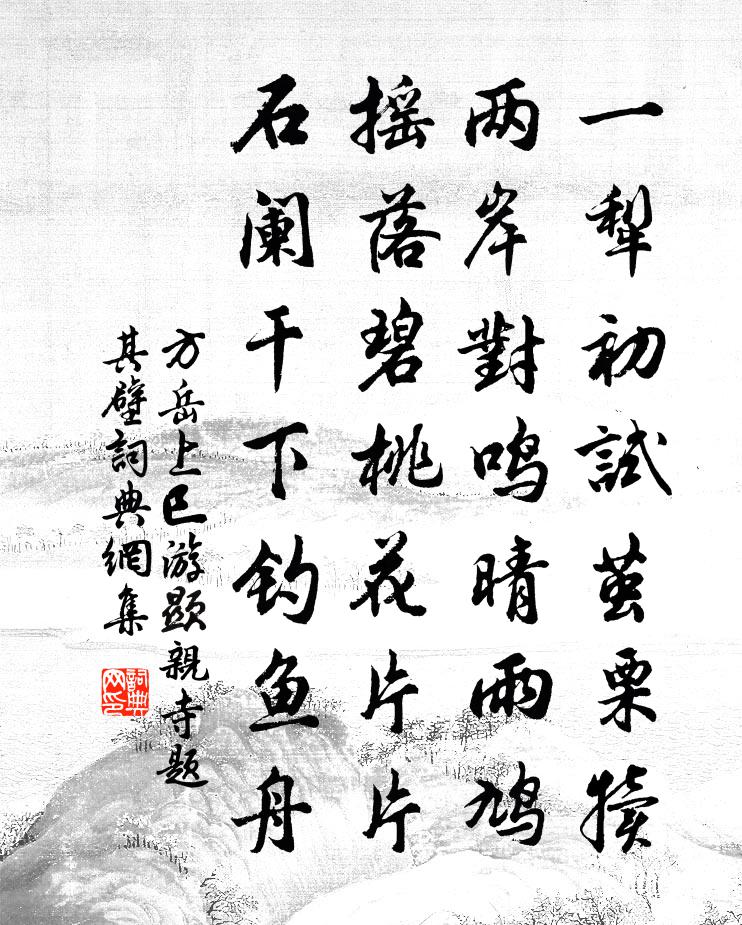 一犁初試茧栗犢
两岸對鳴晴雨鳩
摇落碧桃花片片
石阑干下钓鱼舟
方岳上巳游顯親寺题
其壁詞典網集
詞典网印